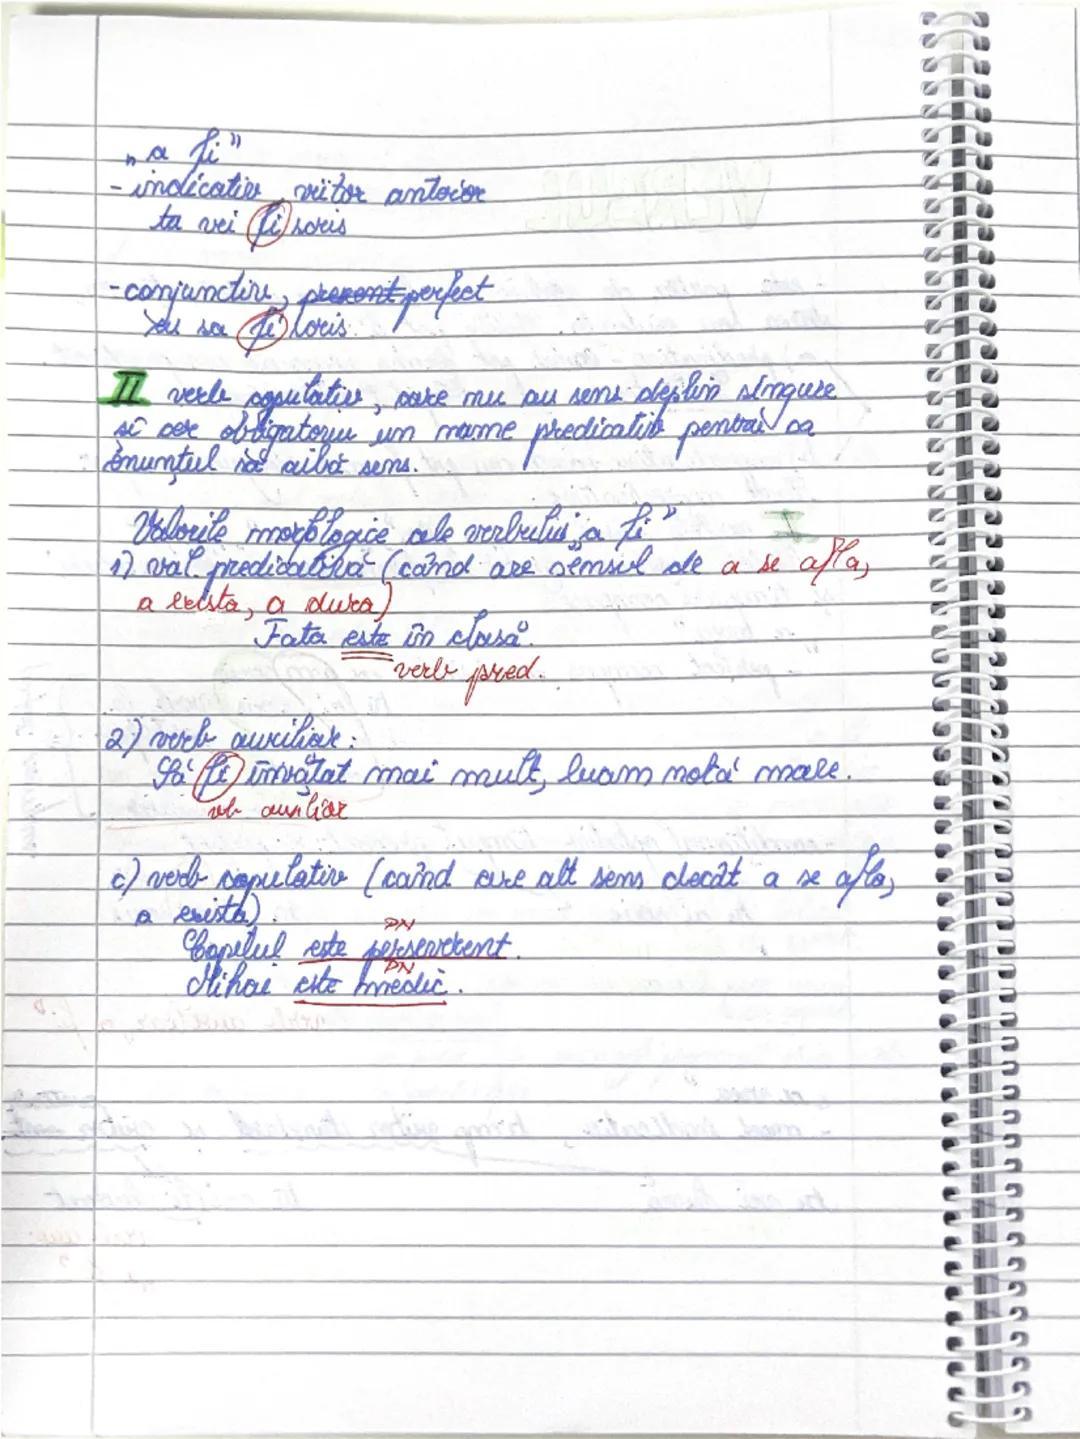 „a fi"
- indicativ, viitor anterior
ta vei fi scris
- conjunctiv, prezent perfect
eu sa fi scris.
II verb copulativ, care nu au sens deplin singure
si cer obligatoriu un nume predicativ pentru ca
enunțul să aibă sens.
Valorile morfologice ale verbului „a fi" I
1) val. predicativă (când are sensul de a se afla,
a exista, a dura)
Fata este în clasă.
verb pred.
2) verb auxiliar:
Să fi învățat mai mult, luam notă mare.
vb auxiliar
c) verb copulativ (când are alt sens decât a se afla,
a exista).
PN
Copilul este perseverent.
PN
Mihai este medic.